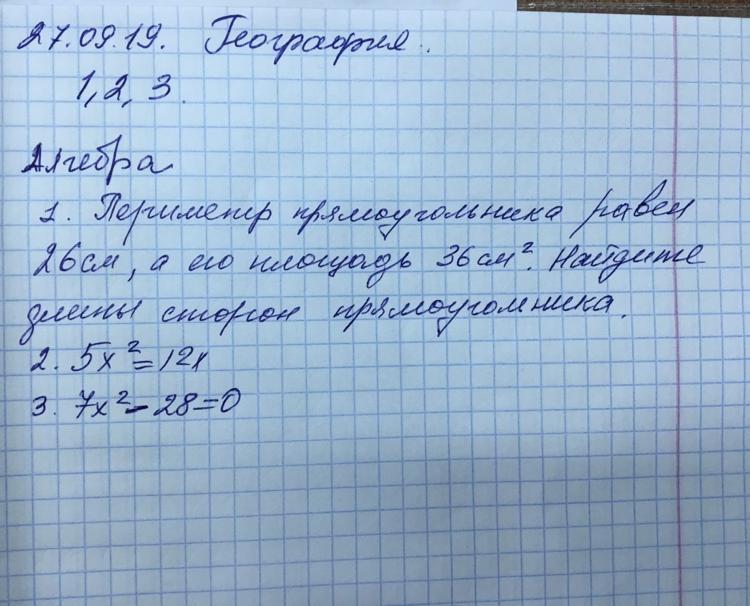 27.09.19. География.
1, 2, 3.
Алгебра
1. Периметр прямоугольника равен
26см, а его площадь 36см². Найдите
длины сторон прямоугольника.
2. 5х² = 12х
3. 7х² - 28 = 0